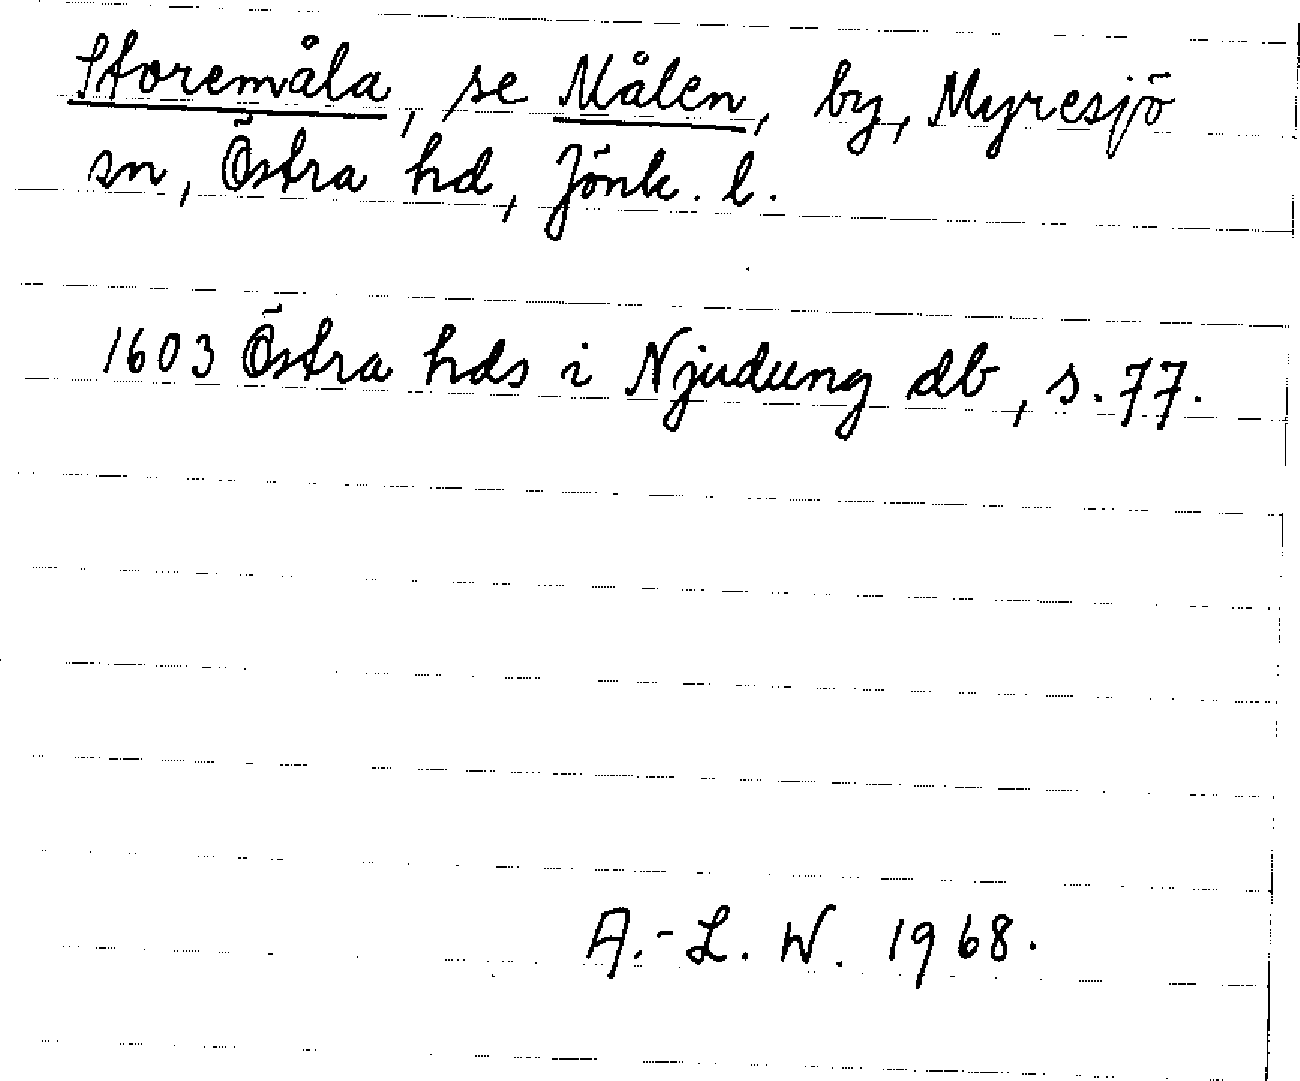 Storemåla, se Målen, by, Myresjö
sn, Östra hd, Jönk. l.
1603 Östra hds i Njudung db, s. 77.
A.-L. W. 1968.